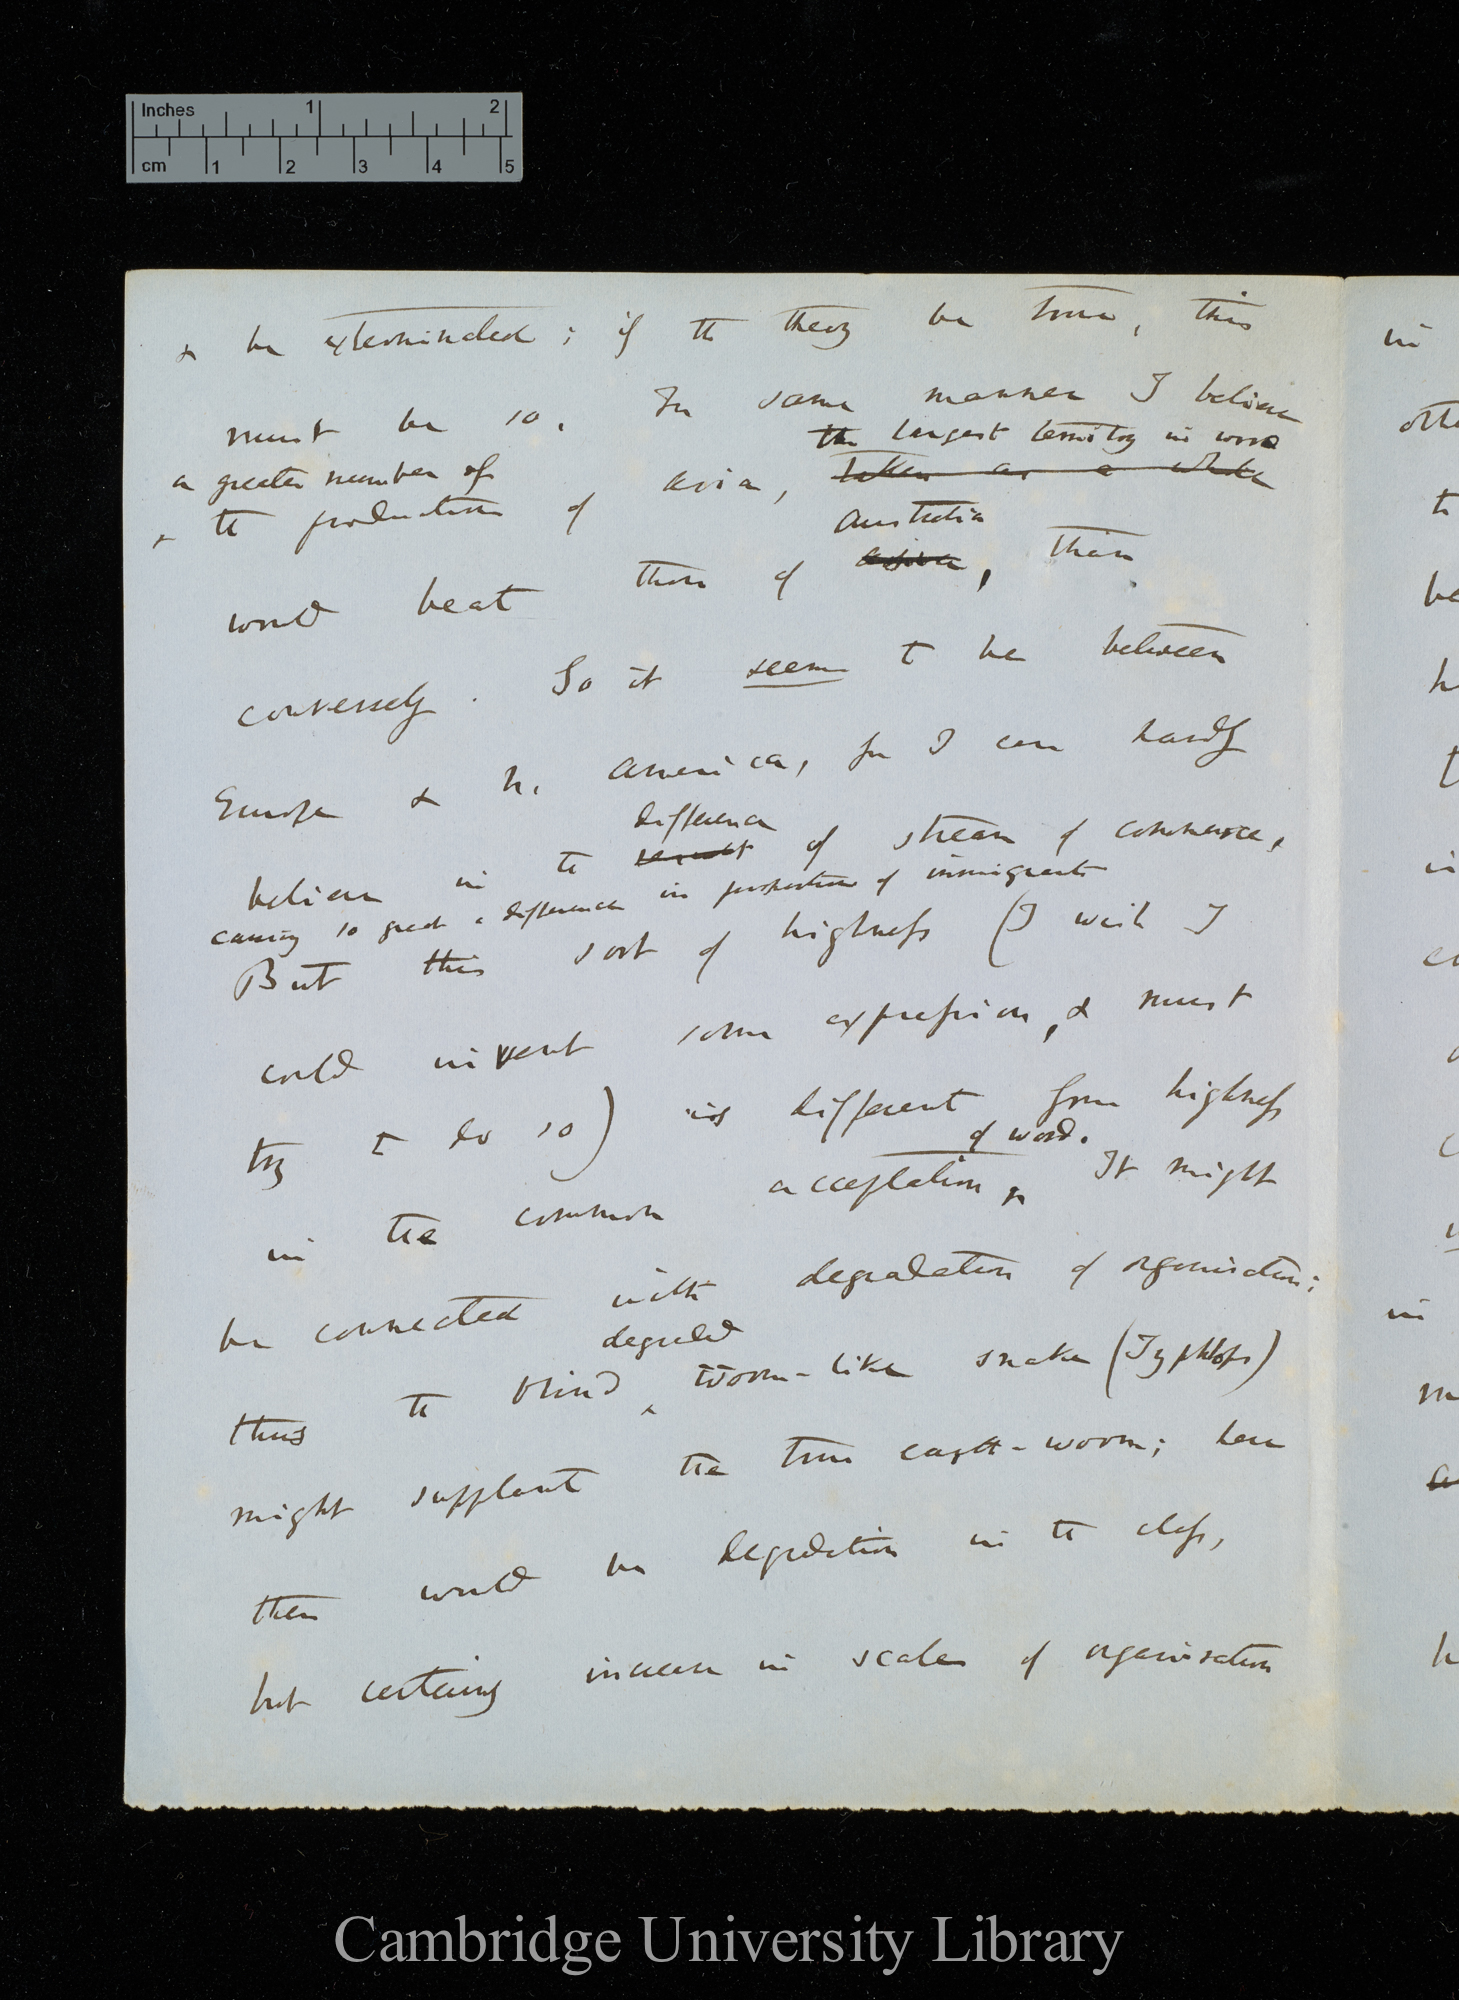 Inches 1 2
cm 1 2 3 4 5
& be exterminated; if the theory be true, this
must be so. In same manner I believe
the largest territory in world
a greater number of
the productions of Asia, taken as a whole
Australia
would beat those of Asia, than
conversely. So it seems to be between
Europe & N. America, for I can hardly
difference
believe in the result of stream of commerce,
causing so great a difference in proportion of immigrants
But this sort of highness (I wish I
could invent some expression, & must
try to do so) is different from highness
of word.
in the common acceptation. It might
be connected with degradation of organisation:
degraded
thus the blind worm-like snake (Typhlops)
might supplant the true earth-worm; here
then would be degradation in the class,
but certainly increase in scale of organisation
in
to
be
in
in
Cambridge University Library